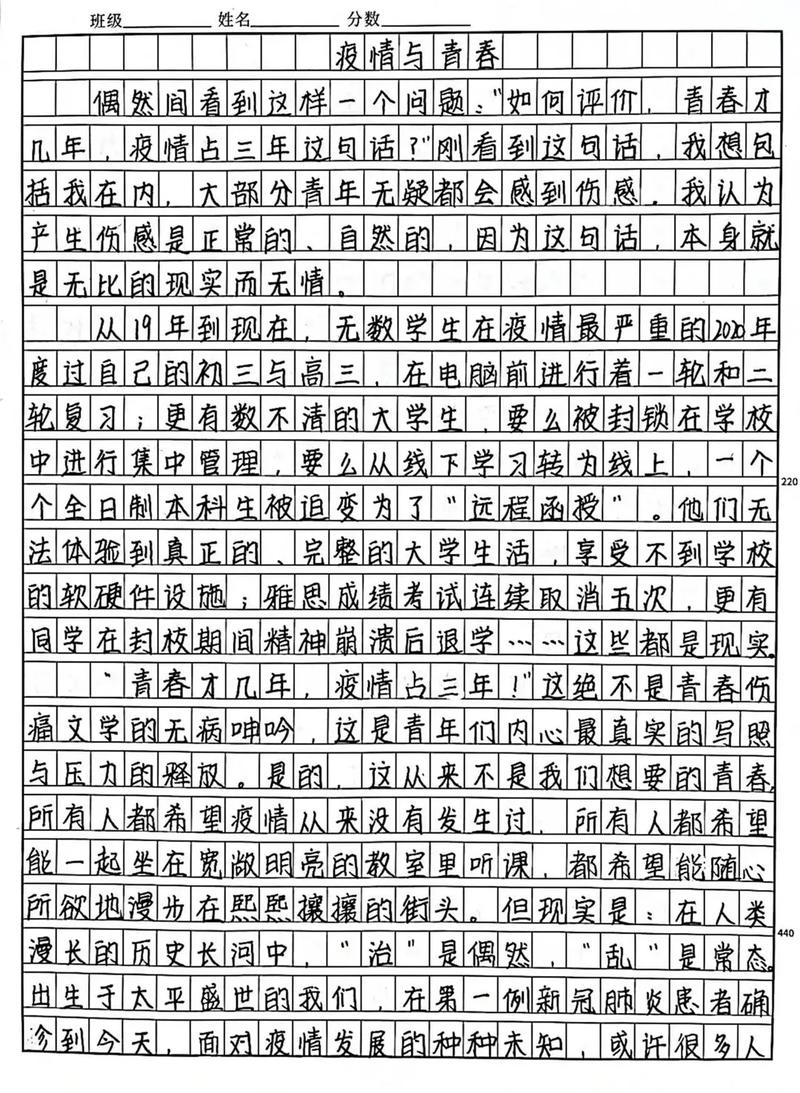 班级 姓名 分数
疫情与青春
偶然间看到这样一个问题："如何评价，青春才
几年，疫情占三年这句话？"刚看到这句话，我想包
括我在内，大部分青年无疑都会感到伤感。我认为
产生伤感是正常的、自然的，因为这句话，本身就
是无比的现实而无情。
从19年到现在，无数学生在疫情最严重的2020年
度过自己的初三与高三，在电脑前进行着一轮和二
轮复习；更有数不清的大学生，要么被封锁在学校
中进行集中管理，要么从线下学习转为线上，一个
个全日制本科生被迫变为了"远程函授"。他们无
法体验到真正的、完整的大学生活，享受不到学校
的软硬件设施；雅思成绩考试连续取消五次，更有
同学在封校期间精神崩溃后退学……这些都是现实。
"青春才几年，疫情占三年！"这绝不是青春伤
痛文学的无病呻吟，这是青年们内心最真实的写照
与压力的释放。是的，这从来不是我们想要的青春，
所有人都希望疫情从来没有发生过，所有人都希望
能一起坐在宽敞明亮的教室里听课，都希望能随心
所欲地漫步在熙熙攘攘的街头。但现实是：在人类
漫长的历史长河中，"治"是偶然，"乱"是常态。
出生于太平盛世的我们，在第一例新冠肺炎患者确
诊到今天，面对疫情发展的种种未知，或许很多人
220
440